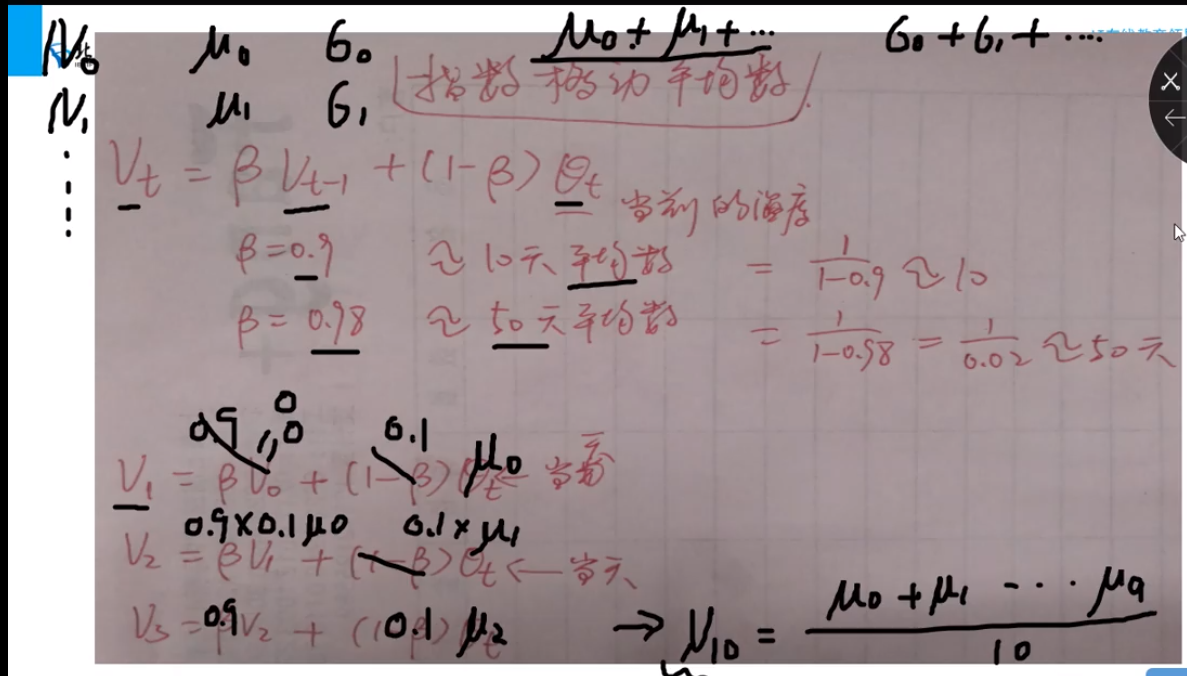 N₀ μ₀ б₀ μ₀+μ₁+… б₀+б₁+…
N₁ μ₁ б₁ 指数移动平均数
V_t = β V_{t-1} + (1-β) θ_t 当前的温度
β=0.9 ≈ 10天平均数 = 1/(1-0.9) ≈ 10
β=0.98 ≈ 50天平均数 = 1/(1-0.98) = 1/0.02 ≈ 50天
0.9 0 0 0.1
V₁ = βV₀ + (1-β) μ₀ ← 当天
0.9×0.1μ0 0.1×μ₁
V₂ = βV₁ + (1-β)θ_t ← 当天
V₃ = 0.9 V₂ + 0.1 μ₂ → V₁₀ = (μ₀+μ₁ … μ₉)/10